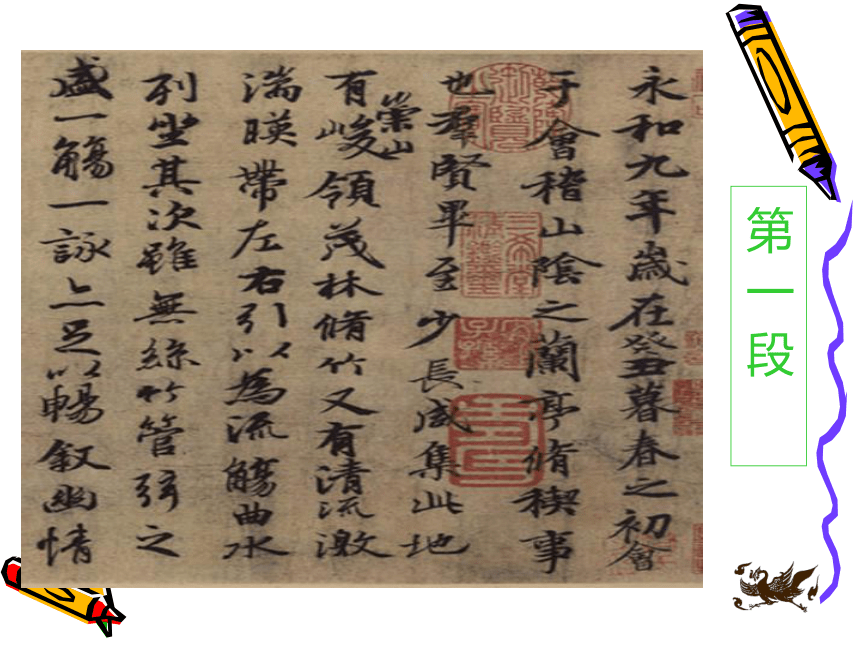 永和九年歲在癸丑暮春之初會
于會稽山陰之蘭亭脩稧事
也羣賢畢至少長咸集此地
有崇山峻領茂林脩竹又有清流激
湍暎帶左右引以為流觴曲水
列坐其次雖無絲竹管弦之
盛一觴一詠亦足以暢叙幽情
第一段